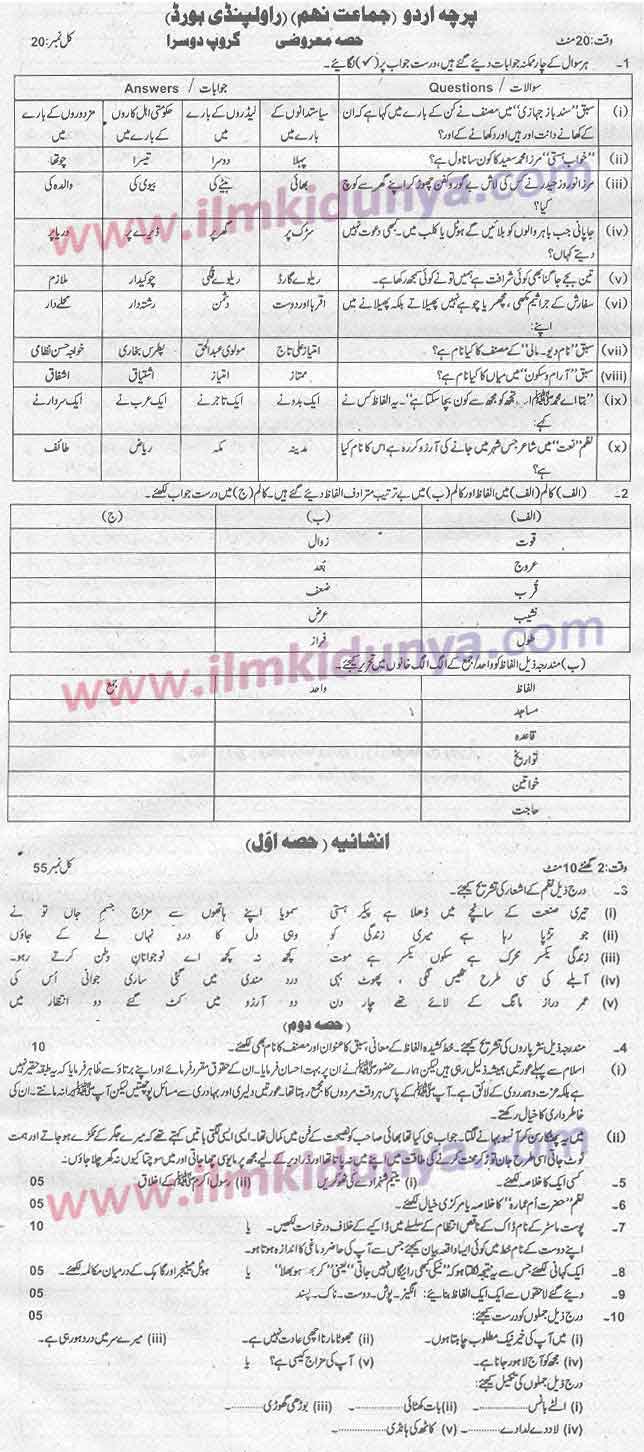 پرچہ اردو (جماعت نہم) (راولپنڈی بورڈ)
وقت: 20 منٹ حصہ معروضی گروپ دوسرا کل نمبر: 20
1- ہر سوال کے چار ممکنہ جوابات دیئے گئے ہیں، درست جواب پر (✓) لگائیے۔
سوالات / Questions جوابات / Answers
(i) سبق "سندباز جہازی" میں مصنف نے کن کے بارے میں کہا ہے کہ ان کے کھانے دانت اور ہیں اور دکھانے کے اور؟ سیاستدانوں کے بارے میں لیڈروں کے بارے میں حکومتی اہل کاروں کے بارے میں مزدوروں کے بارے میں
(ii) "خواب ہستی" مرزا محمد سعید کا کون سا ناول ہے؟ پہلا دوسرا تیسرا چوتھا
(iii) مرزا نوروز حیدر نے کس کی لاش بے گور و کفن چھوڑ کر اپنے گھر سے کوچ کیا؟ بھائی بیٹے کی بیوی کی والدہ کی
(iv) جاپانی جب باہر والوں کو بلائیں گے ہوٹل یا کلب میں۔ کبھی دعوت نہیں دیتے کہاں؟ سڑک پر گھر پر ڈیرے پر دریا پر
(v) تین بجے جاگنا بھی کوئی شرافت ہے ہمیں تو نے کوئی سمجھ رکھا ہے۔ ریلوے گارڈ ریلوے قلی چوکیدار ملازم
(vi) سفارش کے جراثیم مکھی، مچھر یا چوہے نہیں پھیلاتے بلکہ پھیلانے میں اپنے: اقربا اور دوست دشمن رشتہ دار محلے دار
(vii) سبق "نام دیو۔ مالی" کے مصنف کا کیا نام ہے؟ امتیاز علی تاج مولوی عبدالحق پطرس بخاری خواجہ حسن نظامی
(viii) سبق "آرام و سکون" میں میاں کا کیا نام ہے؟ ممتاز امتیاز اشتیاق اشفاق
(ix) "بتا اے محمدﷺ! تجھ کو مجھ سے کون بچا سکتا ہے"۔ یہ الفاظ کس نے کہے: ایک بدو نے ایک تاجر نے ایک عرب نے ایک سردار نے
(x) نظم "نعت" میں شاعر جس شہر میں جانے کی آرزو کر رہا ہے اس کا نام کیا ہے؟ مدینہ مکہ ریاض طائف
2- (الف) کالم (الف) میں الفاظ اور کالم (ب) میں بے ترتیب مترادف الفاظ دیئے گئے ہیں۔ کالم (ج) میں درست جواب لکھئے۔
(الف) (ب) (ج)
قوت زوال
عروج بُعد
قُرب ضعف
نشیب عرض
طول فراز
(ب) مندرجہ ذیل الفاظ کو واحد/جمع کے الگ الگ خانوں میں تحریر کیجئے۔
الفاظ واحد جمع
مساجد
قاعدہ
تواریخ
خواتین
حاجت
انشائیہ (حصہ اوّل)
وقت: 2 گھنٹے 10 منٹ کل نمبر 55
3- درج ذیل نظم کے اشعار کی تشریح کیجئے۔
(i) تیری صنعت کے سانچے میں ڈھلا ہے پیکر ہستی سمویا اپنے ہاتھوں سے مزاج جسم جاں تو نے
(ii) جو تڑپا رہا ہے میری زندگی کو وہی دل کا دردِ نہاں لے کے جاؤں
(iii) زندگی یکسر تحرک ہے سکوں یکسر ہے موت کچھ نہ کچھ اے نوجوانانِ وطن کرتے رہو۔
(iv) آبلے کی سی طرح ٹھیس لگی، پھوٹ بہی درد مندی میں گئی ساری جوانی اُس کی
(v) عمر دراز مانگ کے لائے تھے چار دن دو آرزو میں کٹ گئے دو انتظار میں
(حصہ دوم)
4- مندرجہ ذیل نثرپاروں کی تشریح کیجئے۔ خط کشیدہ الفاظ کے معانی، سبق کا عنوان اور مصنف کا نام بھی لکھئے۔ 10
(i) اسلام سے پہلے عورتیں ہمیشہ ذلیل رہی ہیں لیکن ہمارے حضورﷺ نے ان پر بہت احسان فرمایا۔ ان کے حقوق مقرر فرمائے اور اپنے برتاؤ سے ظاہر فرمایا کہ یہ طبقہ حقیر نہیں
ہے بلکہ عزت و ہمدردی کے لائق ہے۔ آپﷺ کے پاس ہر وقت مردوں کا مجمع رہتا تھا۔ عورتیں دلیری اور بہادری سے مسائل پوچھتیں لیکن آپﷺ برا نہ مانتے۔ ان کی
خاطرداری کا خیال رکھتے۔
(ii) میں یہ پھٹکار سن کر آنسو بہانے لگتا۔ جواب ہی کیا تھا بھائی صاحب کو نصیحت کے فن میں کمال تھا۔ ایسی ایسی لگتی باتیں کہتے تھے کہ میرے جگر کے ٹکڑے ہو جاتے اور ہمت
ٹوٹ جاتی اس طرح جان توڑ کر محنت کرنے کی طاقت میں اپنے میں نہ پاتا تھا اور ذرا دیر کے لیے مجھ پر مایوسی چھا جاتی اور میں سوچتا کیوں نہ گھر چلا جاؤں۔
5- کسی ایک کا خلاصہ لکھئے۔ (i) یتیم شہزادے کی ٹھوکریں (ii) رسول اکرمﷺ کے اخلاق 05
6- نظم "حضرت اُم عمارہ" کا خلاصہ یا مرکزی خیال لکھئے۔ 05
7- پوسٹ ماسٹر کے نام ڈاک کے ناقص انتظام کے سلسلے میں ڈاکیے کے خلاف درخواست لکھیں۔ یا 10
اپنے دوست کے نام خط میں کوئی ایسا واقعہ بیان کیجئے جس سے آپ کی حاضر دماغی کا اندازہ ہوتا ہو۔
8- ایک کہانی لکھئے جس سے یہ نتیجہ نکلتا ہو کہ "نیکی کبھی رائیگاں نہیں جاتی" یعنی "کر بھلا ہو بھلا" یا ہوٹل مینیجر اور گاہک کے درمیان مکالمہ لکھئے۔ 05
9- دیئے گئے لاحقوں سے ایک ایک الفاظ بنائیے: انگیز۔ پوش۔ دوست۔ ناک۔ پسند 05
10- درج ذیل جملوں کو درست کیجئے: 05
(i) میں آپ کی خیر نیک مطلوب چاہتا ہوں۔ (ii) جھوٹا مارنا اچھی عادت نہیں ہے۔ (iii) میرے سر میں درد ہو رہی ہے۔
(iv) مجھ کو آج لاہور جانا ہے۔ (v) آپ کی مزاج کیسی ہے؟ یا
درج ذیل جملوں کی تکمیل کیجئے:
(i) الٹے بانس ............ (ii) بات کھٹائی ............ (iii) بوڑھی گھوڑی ............
(iv) لا دو دے لدا دے ............ (v) کاٹھ کی ہانڈی ............
www.ilmkidunya.com
www.ilmkidunya.com
www.ilmkidunya.com